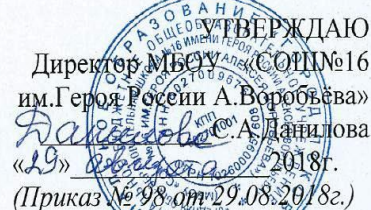 УТВЕРЖДАЮ
Директор МБОУ «СОШ№16
им.Героя России А.Воробьёва»
Данилова С.А.Данилова
«29» августа 2018г.
(Приказ № 98 от 29.08.2018г.)